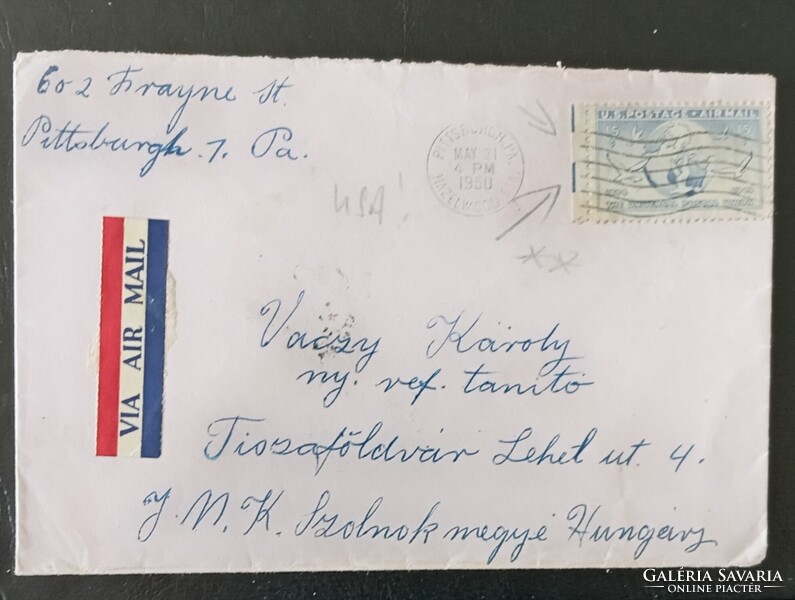 602 Frayne St.
Pittsburgh. 7. Pa.
U.S. POSTAGE • AIR MAIL
15 15
PITTSBURGH, PA.
MAY 21
4 PM
1950
HAZELWOOD
USA!
VIA AIR MAIL
Vaczy Károly
ny. ref. tanitó
Tiszaföldvár Lehel ut. 4.
J. N. K. Szolnok megyé Hungáry
GALÉRIA SAVARIA
ONLINE PIACTÉR